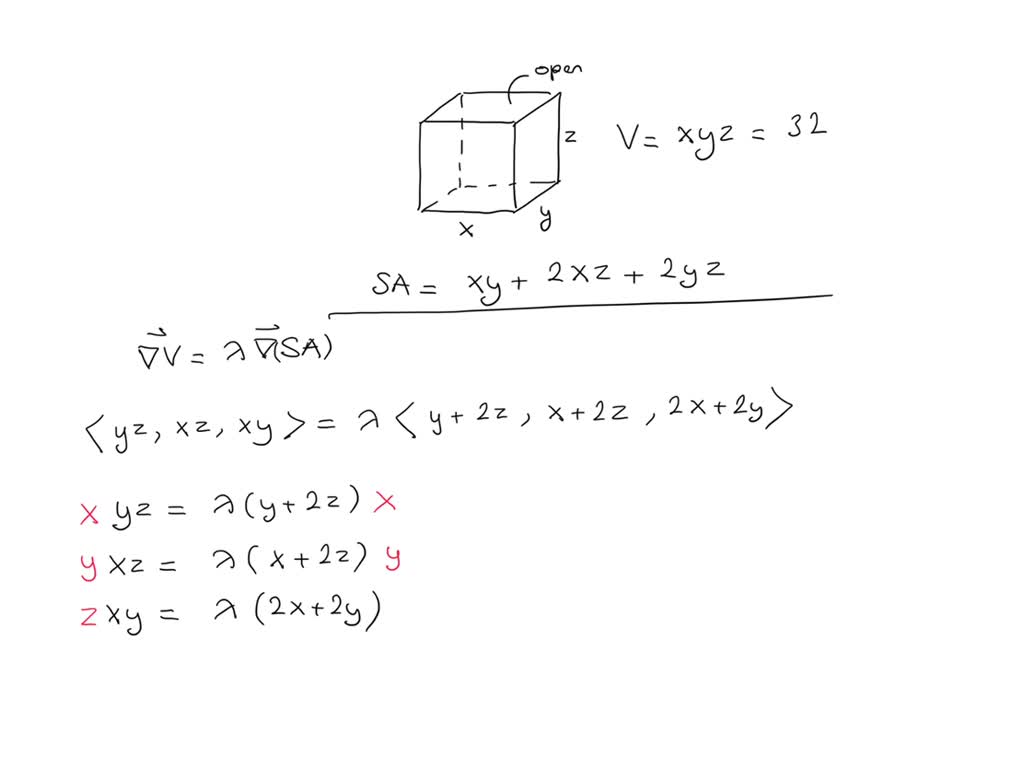 open
z
V = xyz = 32
y
x
SA = xy + 2xz + 2yz
∇⃗V = λ ∇⃗(SA)
⟨yz, xz, xy⟩ = λ ⟨y + 2z, x + 2z, 2x + 2y⟩
x yz = λ(y + 2z) x
y xz = λ(x + 2z) y
z xy = λ(2x + 2y)